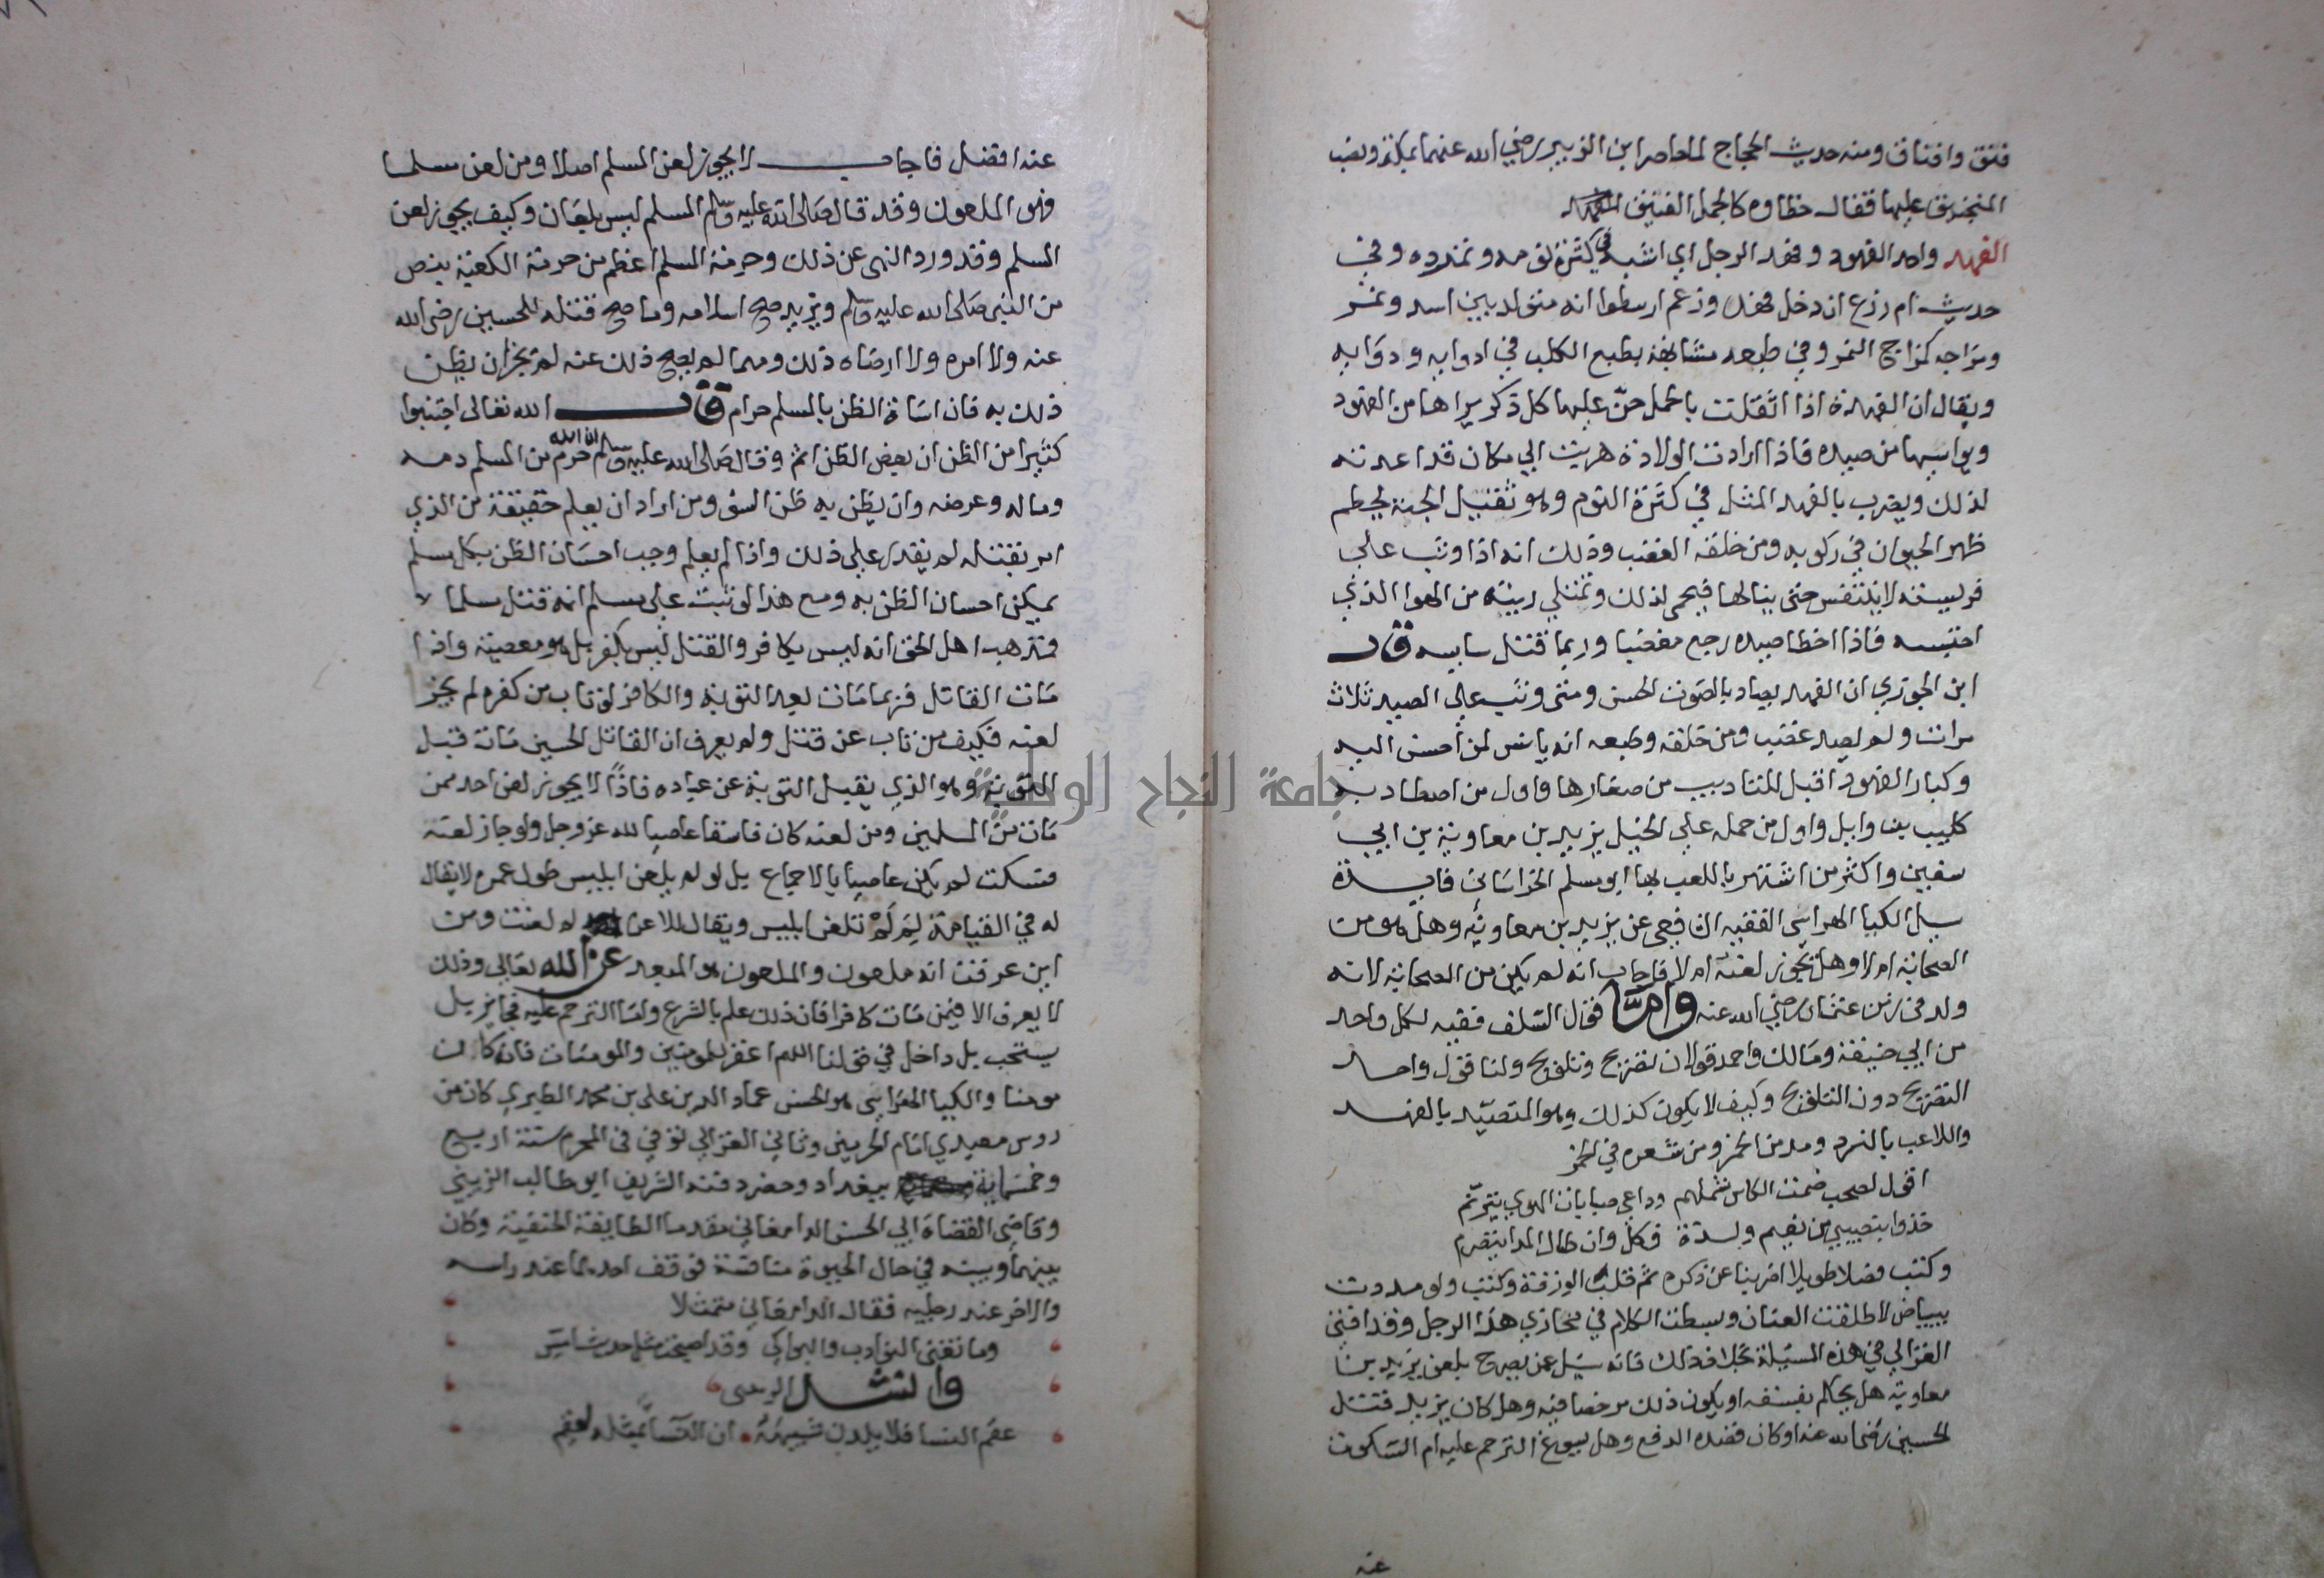 فتق وافناق ومنه حديث الحجاج لما حاصر ابن الزبير رضي الله عنهما بمكة ونصب
المنجنيق عليها فقال خطاره كالجمل الفنيق
الفهد واحد الفهود وفهد الرجل اي اشبه في كثرة نومه وتمدده وفي
حديث ام زرع ان دخل فهد وزعم ارسطوا انه متولد بين اسد ونمر
ومزاجه كمزاج النمر وفي طبعه مشابهة بطبع الكلب في ادوايه ودوايه
ويقال ان الفهدة اذا اثقلت بالحمل حن عليها كل ذكر يراها من الفهود
ويواسيها من صيده فاذا ارادت الولادة هربت الي مكان قد اعدته
لذلك ويضرب بالفهد المثل في كثرة النوم وهو ثقيل الجثة يحطم
ظهر الحيوان في ركوبه ومن خلقه الغضب وذلك انه اذا وثب علي
فريسته لا يتنفس حتى ينالها فيحمي لذلك وتمتلي رييته من الهوا الذي
احتبسه فاذا اخطا صيده رجع مغضبا وربما قتل سايسه قال
ابن الجوزي ان الفهد يصاد بالصوت الحسن ومتى وثب علي الصيد ثلاث
مرات ولم يصد غضب ومن خلقه وطبعه انه يانس لمن احسن اليه
وكبار الفهود اقبل للتاديب من صغارها واول من اصطاد به
كليب بن وايل واول من حمله علي الخيل يزيد بن معاوية بن ابي
سفين واكثر من اشتهر باللعب بها ابو مسلم الخراساني فايدة
سيل الكيا الهراسي الفقيه الشافعي عن يزيد بن معاوية وهل هو من
الصحابة ام لا وهل يجوز لعنه ام لا فاجاب انه لم يكن من الصحابة لانه
ولد في زمن عثمان رضي الله عنه واما قول السلف ففيه لكل واحد
من ابي حنيفة ومالك واحمد قولان تصريح وتلويح ولنا قول واحد
التصريح دون التلويح وكيف لا يكون كذلك وهو المتصيد بالفهد
واللاعب بالنرد ومدمن الخمر ومن شعره في الخمر
اقول لصحب ضمت الكاس شملهم وداعي صبابات الهوي يترنم
خذوا بنصيب من نعيم ولذة فكل وان طال المدا يتصرم
وكتب فصلا طويلا اضربنا عن ذكره ثم قلب الورقة وكتب ولو مددت
ببياض لاطلقت العنان وبسطت الكلام في مخازي هذا الرجل وقد افتى
الغزالي في هذه المسيلة بخلاف ذلك فانه سيل عمن يصرح بلعن يزيد بن
معاوية هل يحكم بفسقه او يكون ذلك مرخصا فيه وهل كان يزيد قتل
الحسين رضي الله عنه او كان قصده الدفع وهل يسوغ الترحم عليه ام السكوت
عنه
عنه افضل فاجاب لا يجوز لعن المسلم اصلا ومن لعن مسلما
فهو الملعون وقد قال صلى الله عليه وسلم المسلم ليس بلعان وكيف يجوز لعن
المسلم وقد ورد النهي عن ذلك وحرمة المسلم اعظم من حرمة الكعبة بنص
من النبي صلى الله عليه وسلم ويزيد صح اسلامه وما صح قتله للحسين رضي الله
عنه ولا امره ولا ارضاه ذلك ومهما لم يصح ذلك عنه لم يجز ان يظن
ذلك به فان اساة الظن بالمسلم حرام قال الله تعالى اجتنبوا
كثيرا من الظن ان بعض الظن اثم وقال صلى الله عليه وسلم ان الله حرم من المسلم دمه
وماله وعرضه وان يظن به ظن السو ومن اراد ان يعلم حقيقة من الذي
امر بقتله لم يقدر علي ذلك واذا لم يعلم وجب احسان الظن بكل مسلم
يمكن احسان الظن به ومع هذا لو ثبت علي مسلم انه قتل مسلما
فمذهب اهل الحق انه ليس بكافر والقتل ليس بكفر بل هو معصية واذا
مات القاتل فربما مات بعد التوبة والكافر لو تاب من كفره لم يجز
لعنه فكيف من تاب عن قتل ولم يعرف ان القاتل الحسين مات قبل
التوبة وهو الذي يقبل التوبة عن عباده فاذًا لا يجوز لعن احد ممن
مات من المسلمين ومن لعنه كان فاسقا عاصيا لله عز وجل ولو جاز لعنه
فسكت لم يكن عاصيا بالاجماع بل لو لم يلعن ابليس طول عمره لا يقال
له في القيامة لِمَ لَمْ تلعن ابليس ويقال للاعن لم لعنت ومن
اين عرفت انه ملعون والملعون هو المبعد عن الله تعالي وذلك
لا يعرف الا فيمن مات كافرا فان ذلك علم بالشرع واما الترحم عليه فجايز بل
يستحب بل داخل في قولنا اللهم اغفر للمومنين والمومنات فانه كان
مومنا والكيا الهراسي هو الحسن عماد الدين علي بن محمد الطبري كان من
روس معيدي امام الحرمين وثاني الغزالي توفي في المحرم سنة اربع
وخمسماية ببغداد وحضر دفنه الشريف ابو طالب الزينبي
وقاضي القضاة ابي الحسن الدامغاني مقدما الطايفة الحنفية وكان
بينهما وبينه في حال الحيوة منافسة فوقف احدهما عند راسه
والاخر عند رجليه فقال الدامغاني متمثلا
وما تغني النوادب والبواكي وقد اصبحت مثل حديث امس
وانشد الزينبي
عقم النسا فلا يلدن شبيهه ان النسا بمثله لعقم